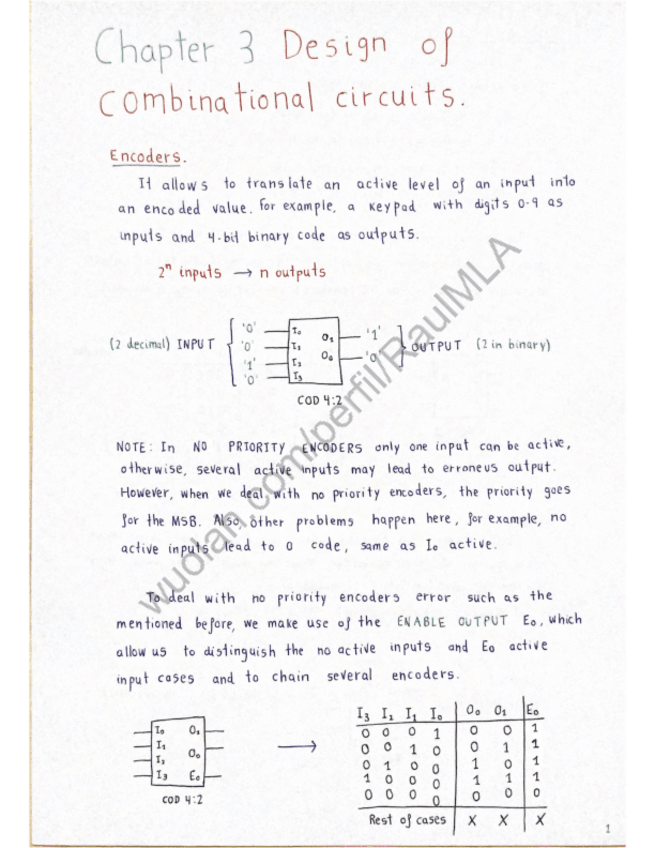 Chapter 3 Design of
Combinational circuits.
Encoders.
It allows to translate an active level of an input into
an encoded value. For example, a keypad with digits 0-9 as
inputs and 4-bit binary code as outputs.
2ⁿ inputs → n outputs
(2 decimal) INPUT { '0' I₀ O₁ '1' } OUTPUT (2 in binary)
'0' I₁ O₀ '0'
'1' I₂
'0' I₃
COD 4:2
NOTE: In NO PRIORITY ENCODERS only one input can be active,
otherwise, several active inputs may lead to erroneus output.
However, when we deal with no priority encoders, the priority goes
for the MSB. Also, other problems happen here, for example, no
active inputs lead to 0 code, same as I₀ active.
To deal with no priority encoders error such as the
mentioned before, we make use of the ENABLE OUTPUT E₀, which
allow us to distinguish the no active inputs and E₀ active
input cases and to chain several encoders.
I₀ O₁
I₁
I₂ O₀
I₃ E₀
COD 4:2
→
I₃ I₂ I₁ I₀ O₀ O₁ E₀
0 0 0 1 0 0 1
0 0 1 0 0 1 1
0 1 0 0 1 0 1
1 0 0 0 1 1 1
0 0 0 0 0 0 0
Rest of cases X X X
1
wuolah.com/perfil/RaulMLA